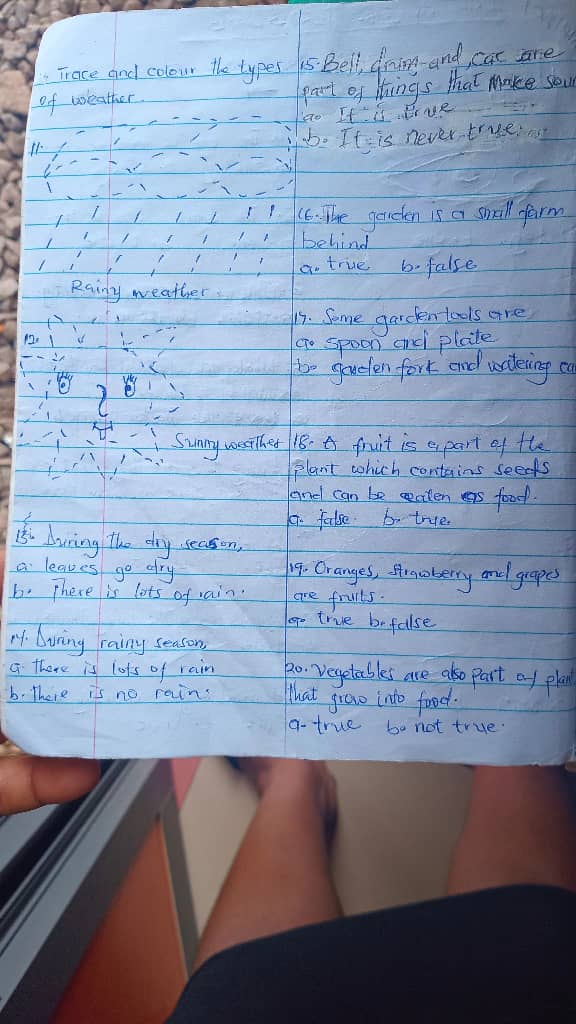 Trace and colour the types
of weather.
11.
Rainy weather
12.
Sunny weather
13. During the dry season,
a. leaves go dry
b. There is lots of rain.
14. During rainy season,
a. there is lots of rain
b. there is no rain.
15. Bell, drum and car are
part of things that make sou
a. It is true
b. It is never true.
16. The garden is a small farm
behind
a. true b. false
17. Some garden tools are
a. spoon and plate
b. garden fork and watering ca
18. A fruit is a part of the
plant which contains seeds
and can be eaten as food.
a. false. b. true.
19. Oranges, strawberry and grapes
are fruits.
a. true b. false
20. Vegetables are also part of plan
that grow into food.
a. true b. not true.